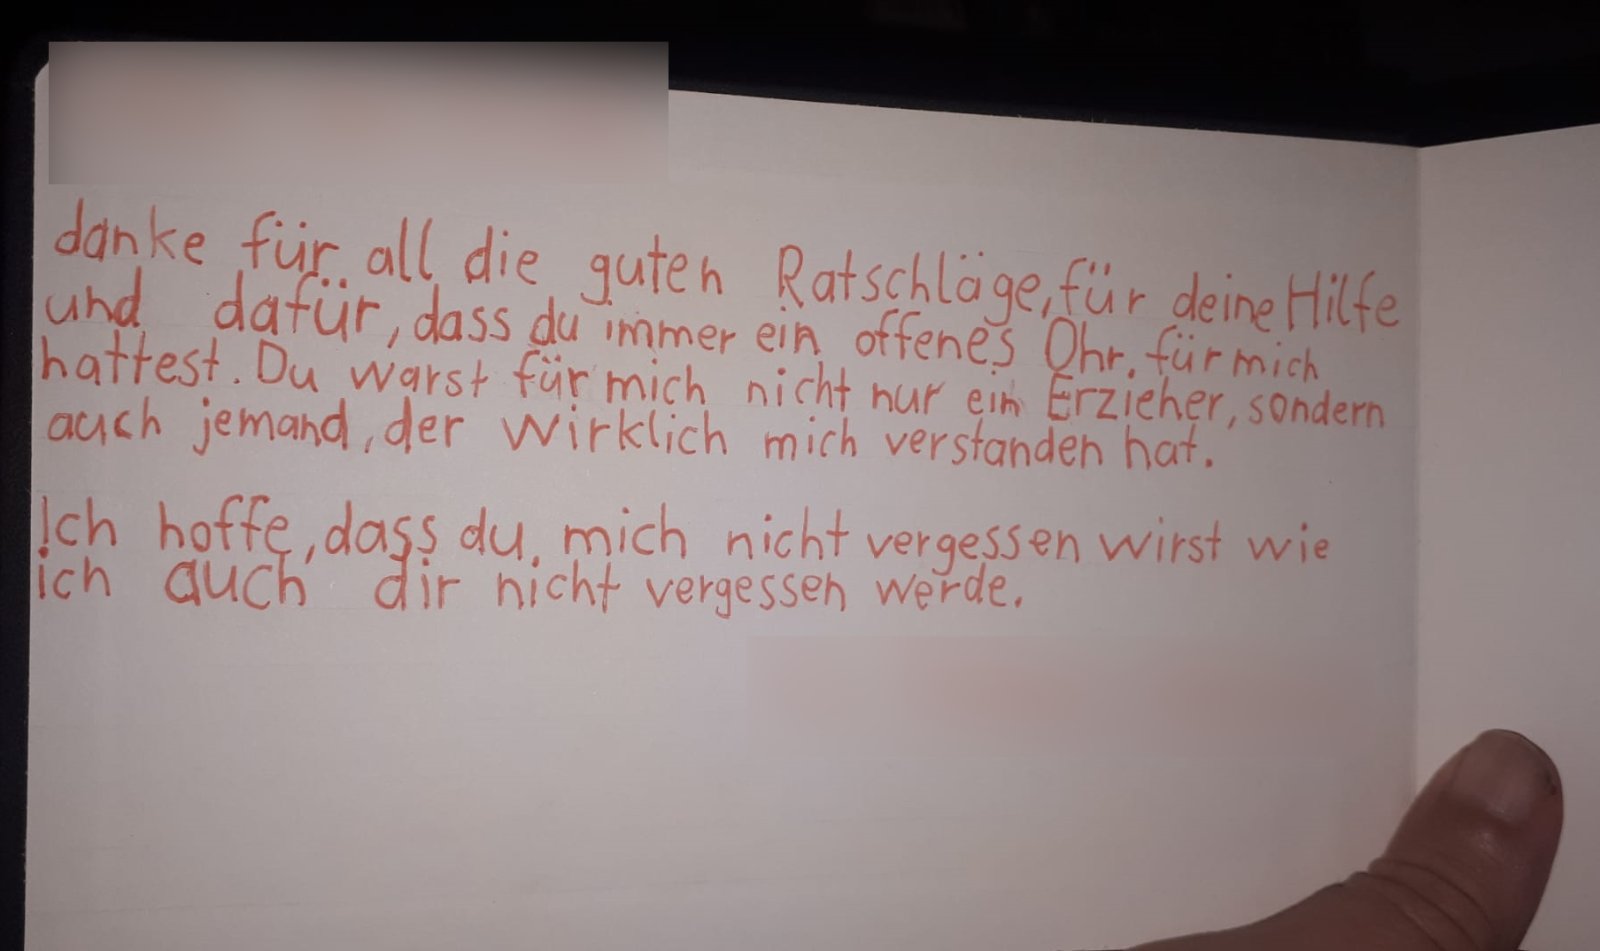 danke für all die guten Ratschläge, für deine Hilfe
und dafür, dass du immer ein offenes Ohr. für mich
hattest. Du warst für mich nicht nur ein Erzieher, sondern
auch jemand, der wirklich mich verstanden hat.
Ich hoffe, dass du, mich nicht vergessen wirst wie
ich auch dir nicht vergessen werde.